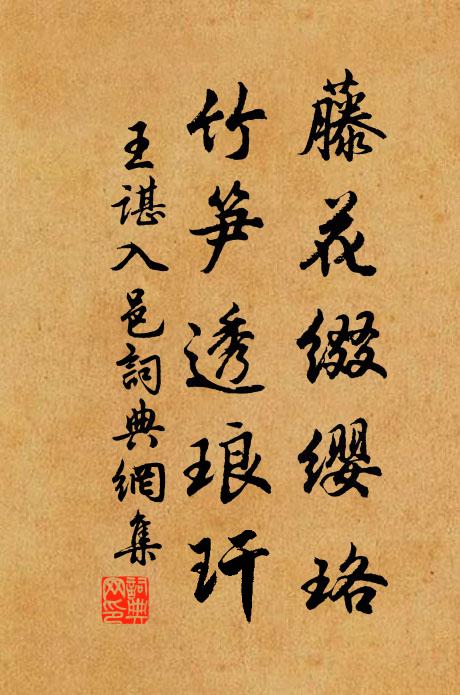 藤花缀缨珞
竹笋透琅玕
王谌入邑詞典網集
詞典網印